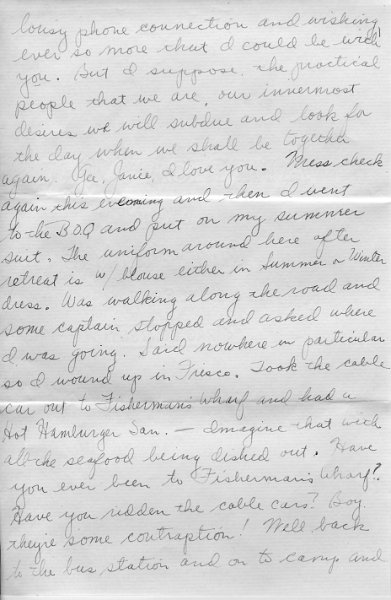 lousy phone connection and wishing
ever so more that I could be with
you. But I suppose, the practical
people that we are, our innermost
desires we will subdue and look for
the day when we shall be together
again. Janie, I love you. Mess check
again this evening and then I went
to the B.O.Q and put on my summer
suit. The uniform around here after
retreat is w/ blouse either in Summer or Winter
dress. Was walking along the road and
some captain stopped and asked where
I was going. Said nowhere in particular
so I wound up in Frisco. Took the cable
car out to Fisherman's Wharf and had a
Hot Hamburger San. — Imagine that with
all the seafood being dished out. Have
you ever been to Fisherman's Wharf?
Have you ridden the cable cars? Boy
they're some contraption! Well back
to the bus station and on to camp and